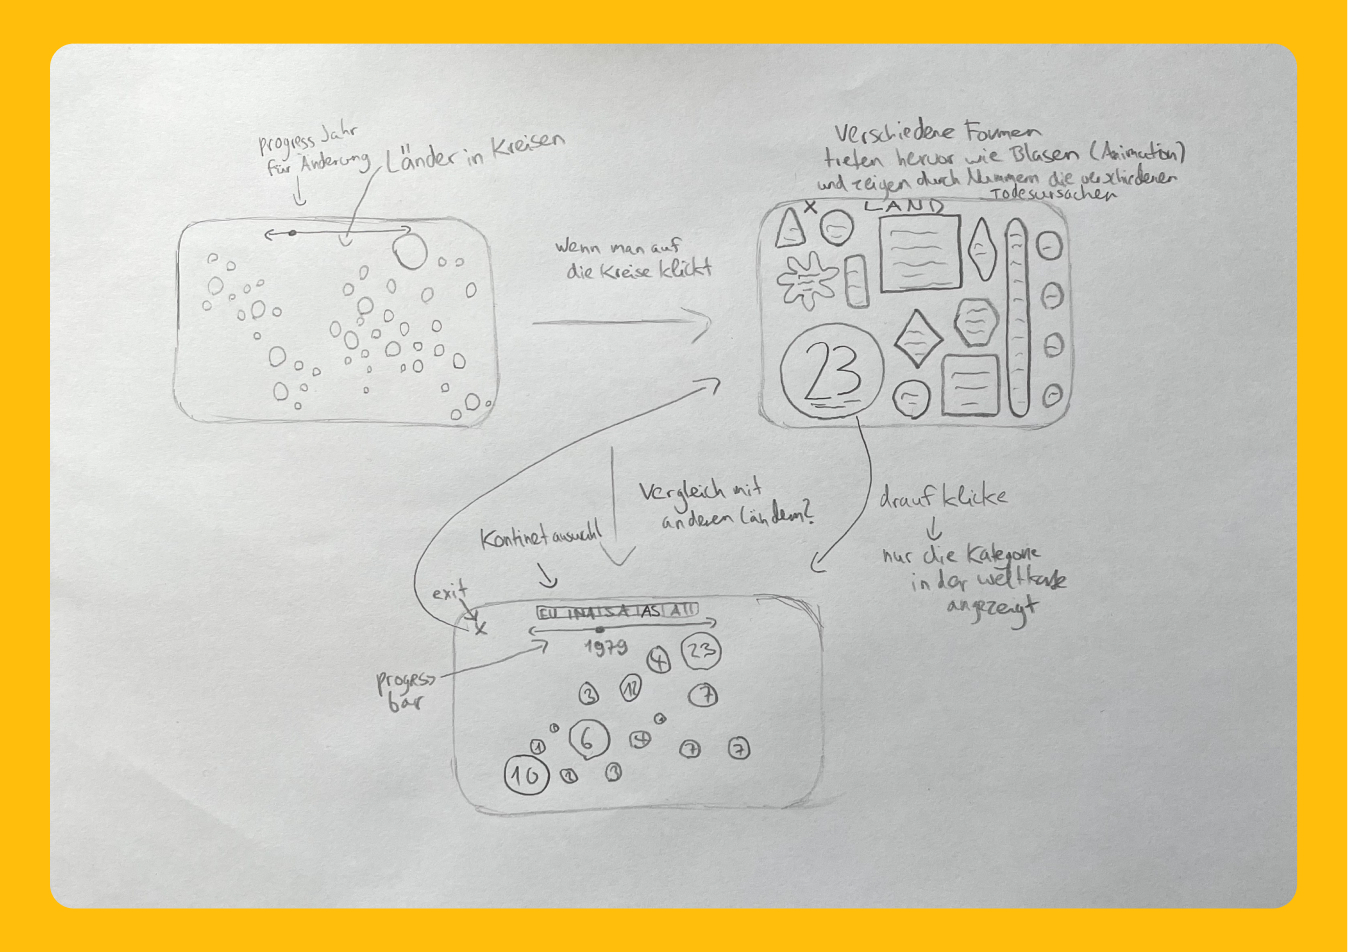 progress Jahr
für Änderung
Länder in Kreisen
Wenn man auf
die Kreise klickt
Verschiedene Formen
treten hervor wie Blasen (Animation)
und zeigen durch Nummern die verschiedenen
Todesursachen
X LAND
23
Vergleich mit
anderen Ländern?
drauf klicke
nur die Kategorie
in der weltkarte
angezeigt
Kontinet auswahl
exit
x
EU NA SA AS All
1979
progess
bar
4 23
3 12 7
1 6 4 7 7
10 2 3